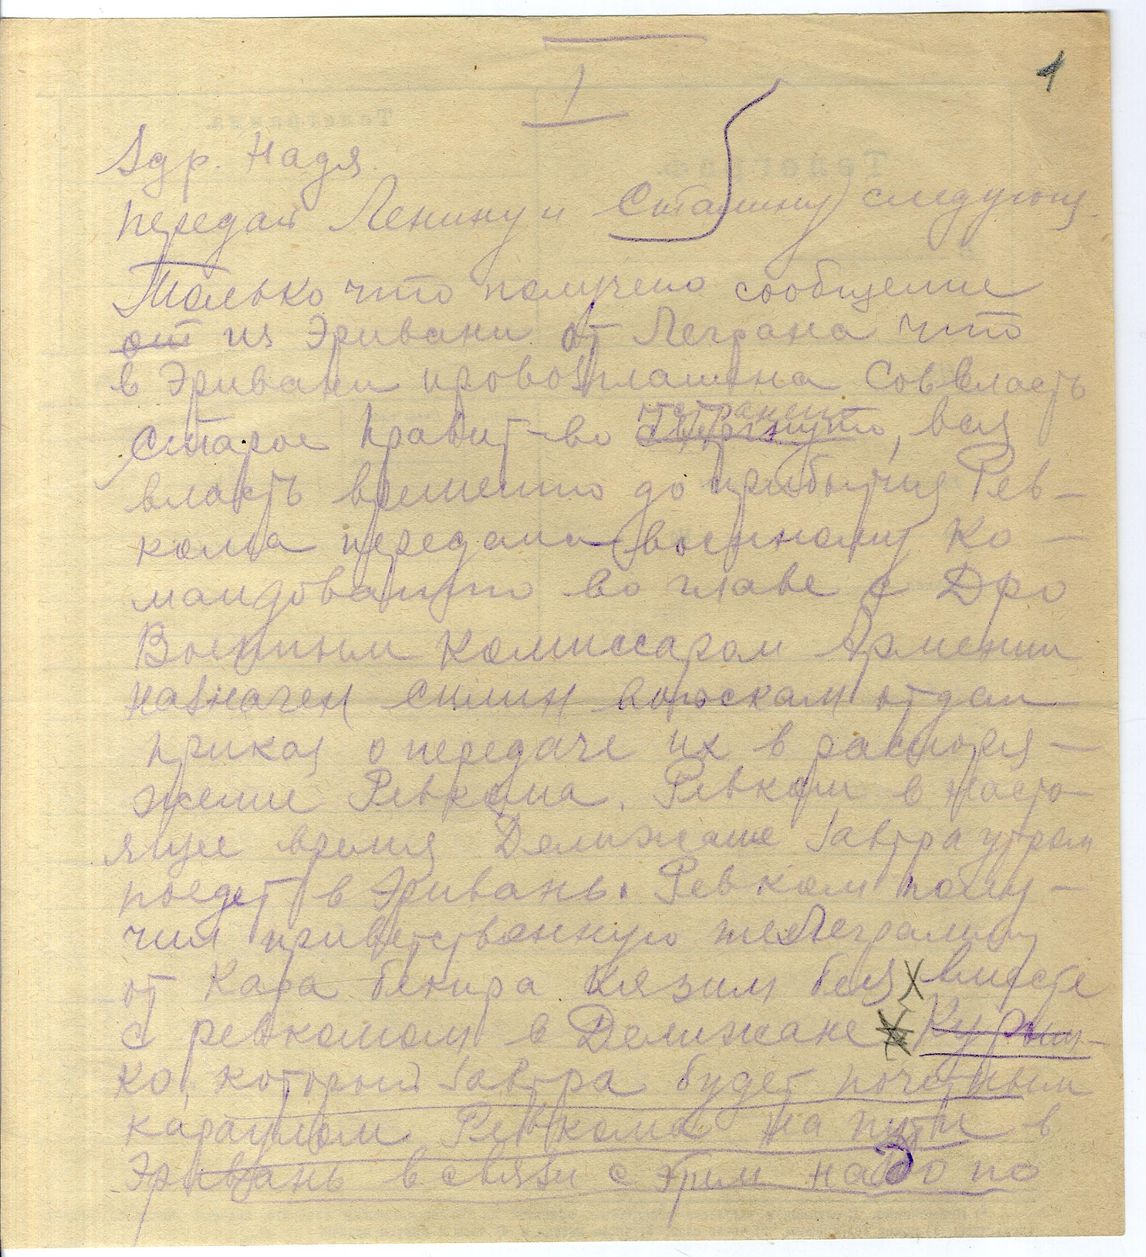 1
I
Здр. Надя.
передай Ленину и Сталину следующ.
Только что получено сообщение
от из Эривани от Леграна что
в Эривани провозглашена Соввласть
отстранено
Старое правит-во, вся
власть временно до прибытия Рев-
кома передана военному ко-
мандованию во главе с Дро
Военным комиссаром Армении
назначен Силин войскам отдан
приказ о передаче их в распоря-
жение Ревкома. Ревком в насто-
ящее время Делижане завтра утром
поедет в Эривань. Ревком полу-
чил приветственную телеграмму
от Кара бекира Кязим бея вместе
с ревкомом в Делижане
ко, который завтра будет почетным
караулом Ревкома на пути в
Эривань в связи с этим надо по